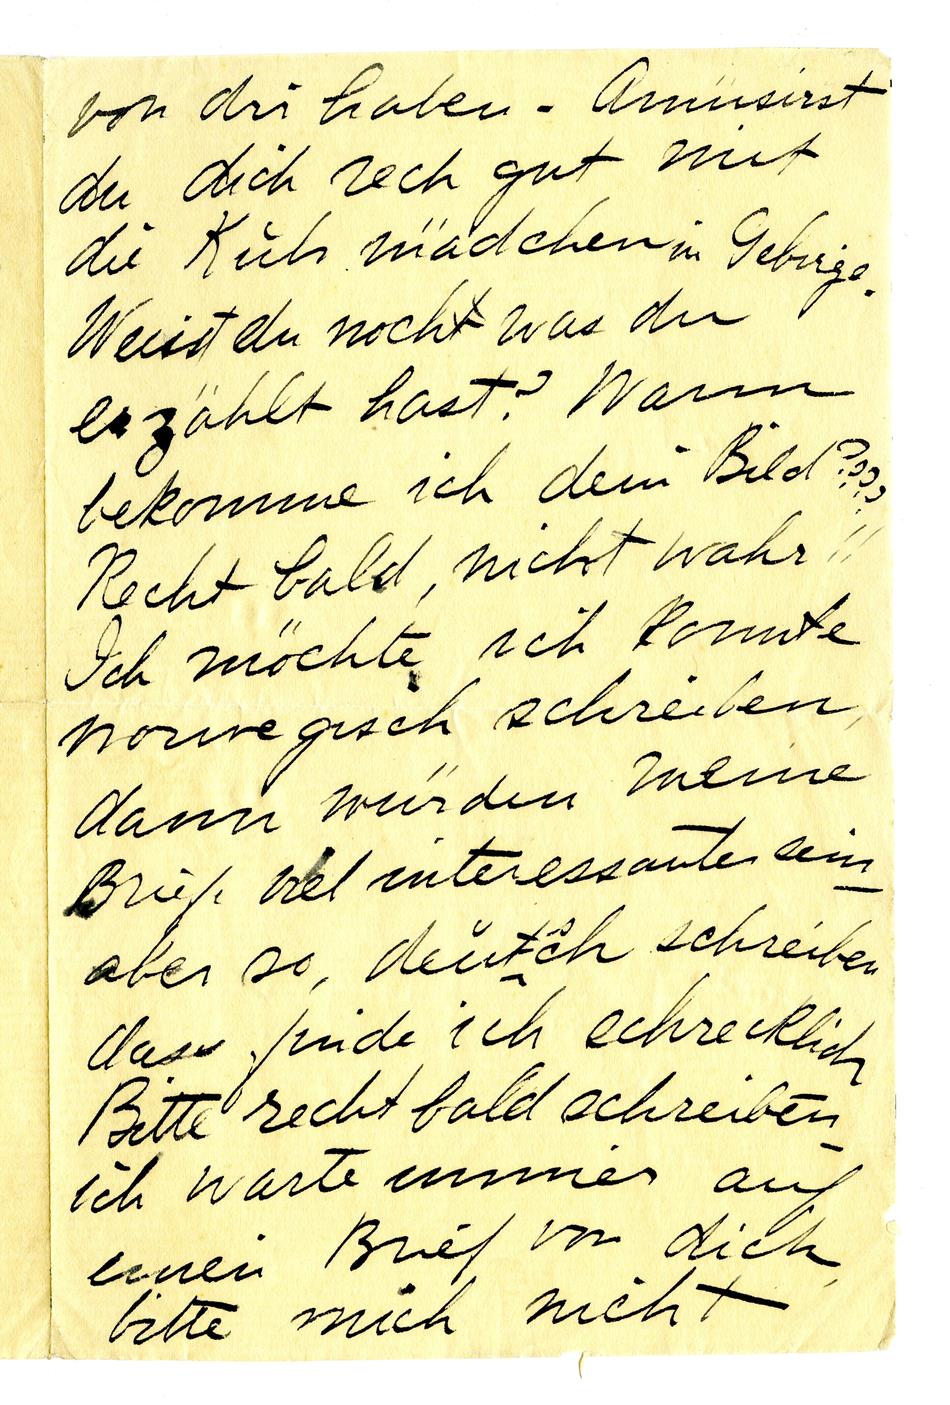 von dir haben - Amüsirst
du dich rech gut mit
die Küh mädchen in Gebirge.
Weisst du noch was du
erzählt hast? Wann
bekomme ich dein Bild????
Recht bald, nicht wahr!!
Ich möchte, ich konnte
norwegisch schreiben,
dann würden meine
Briefe viel interessanter sein
aber so, deutsch schreiben
dass finde ich schrecklich
Bitte recht bald schreiben
ich warte immer auf
einen Brief von dich,
bitte mich nicht